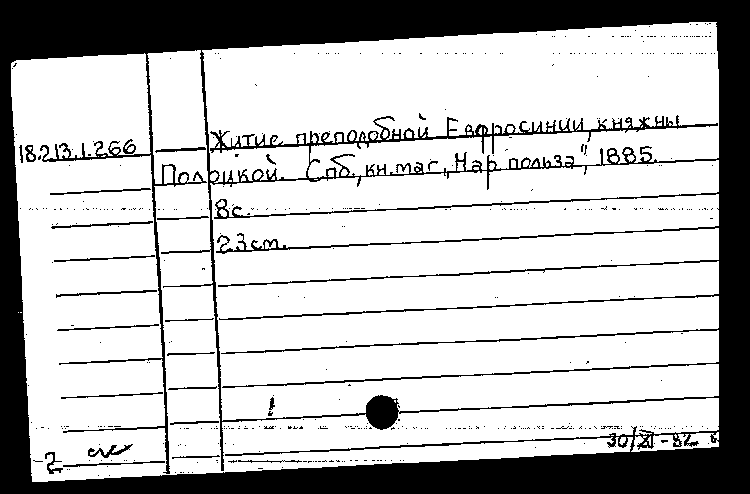 18.213.1.266 Житие преподобной Евфросинии, княжны
Полоцкой. Спб., кн.маг. „Нар польза", 1885.
8с.
23см.
!
2
30/XI-82